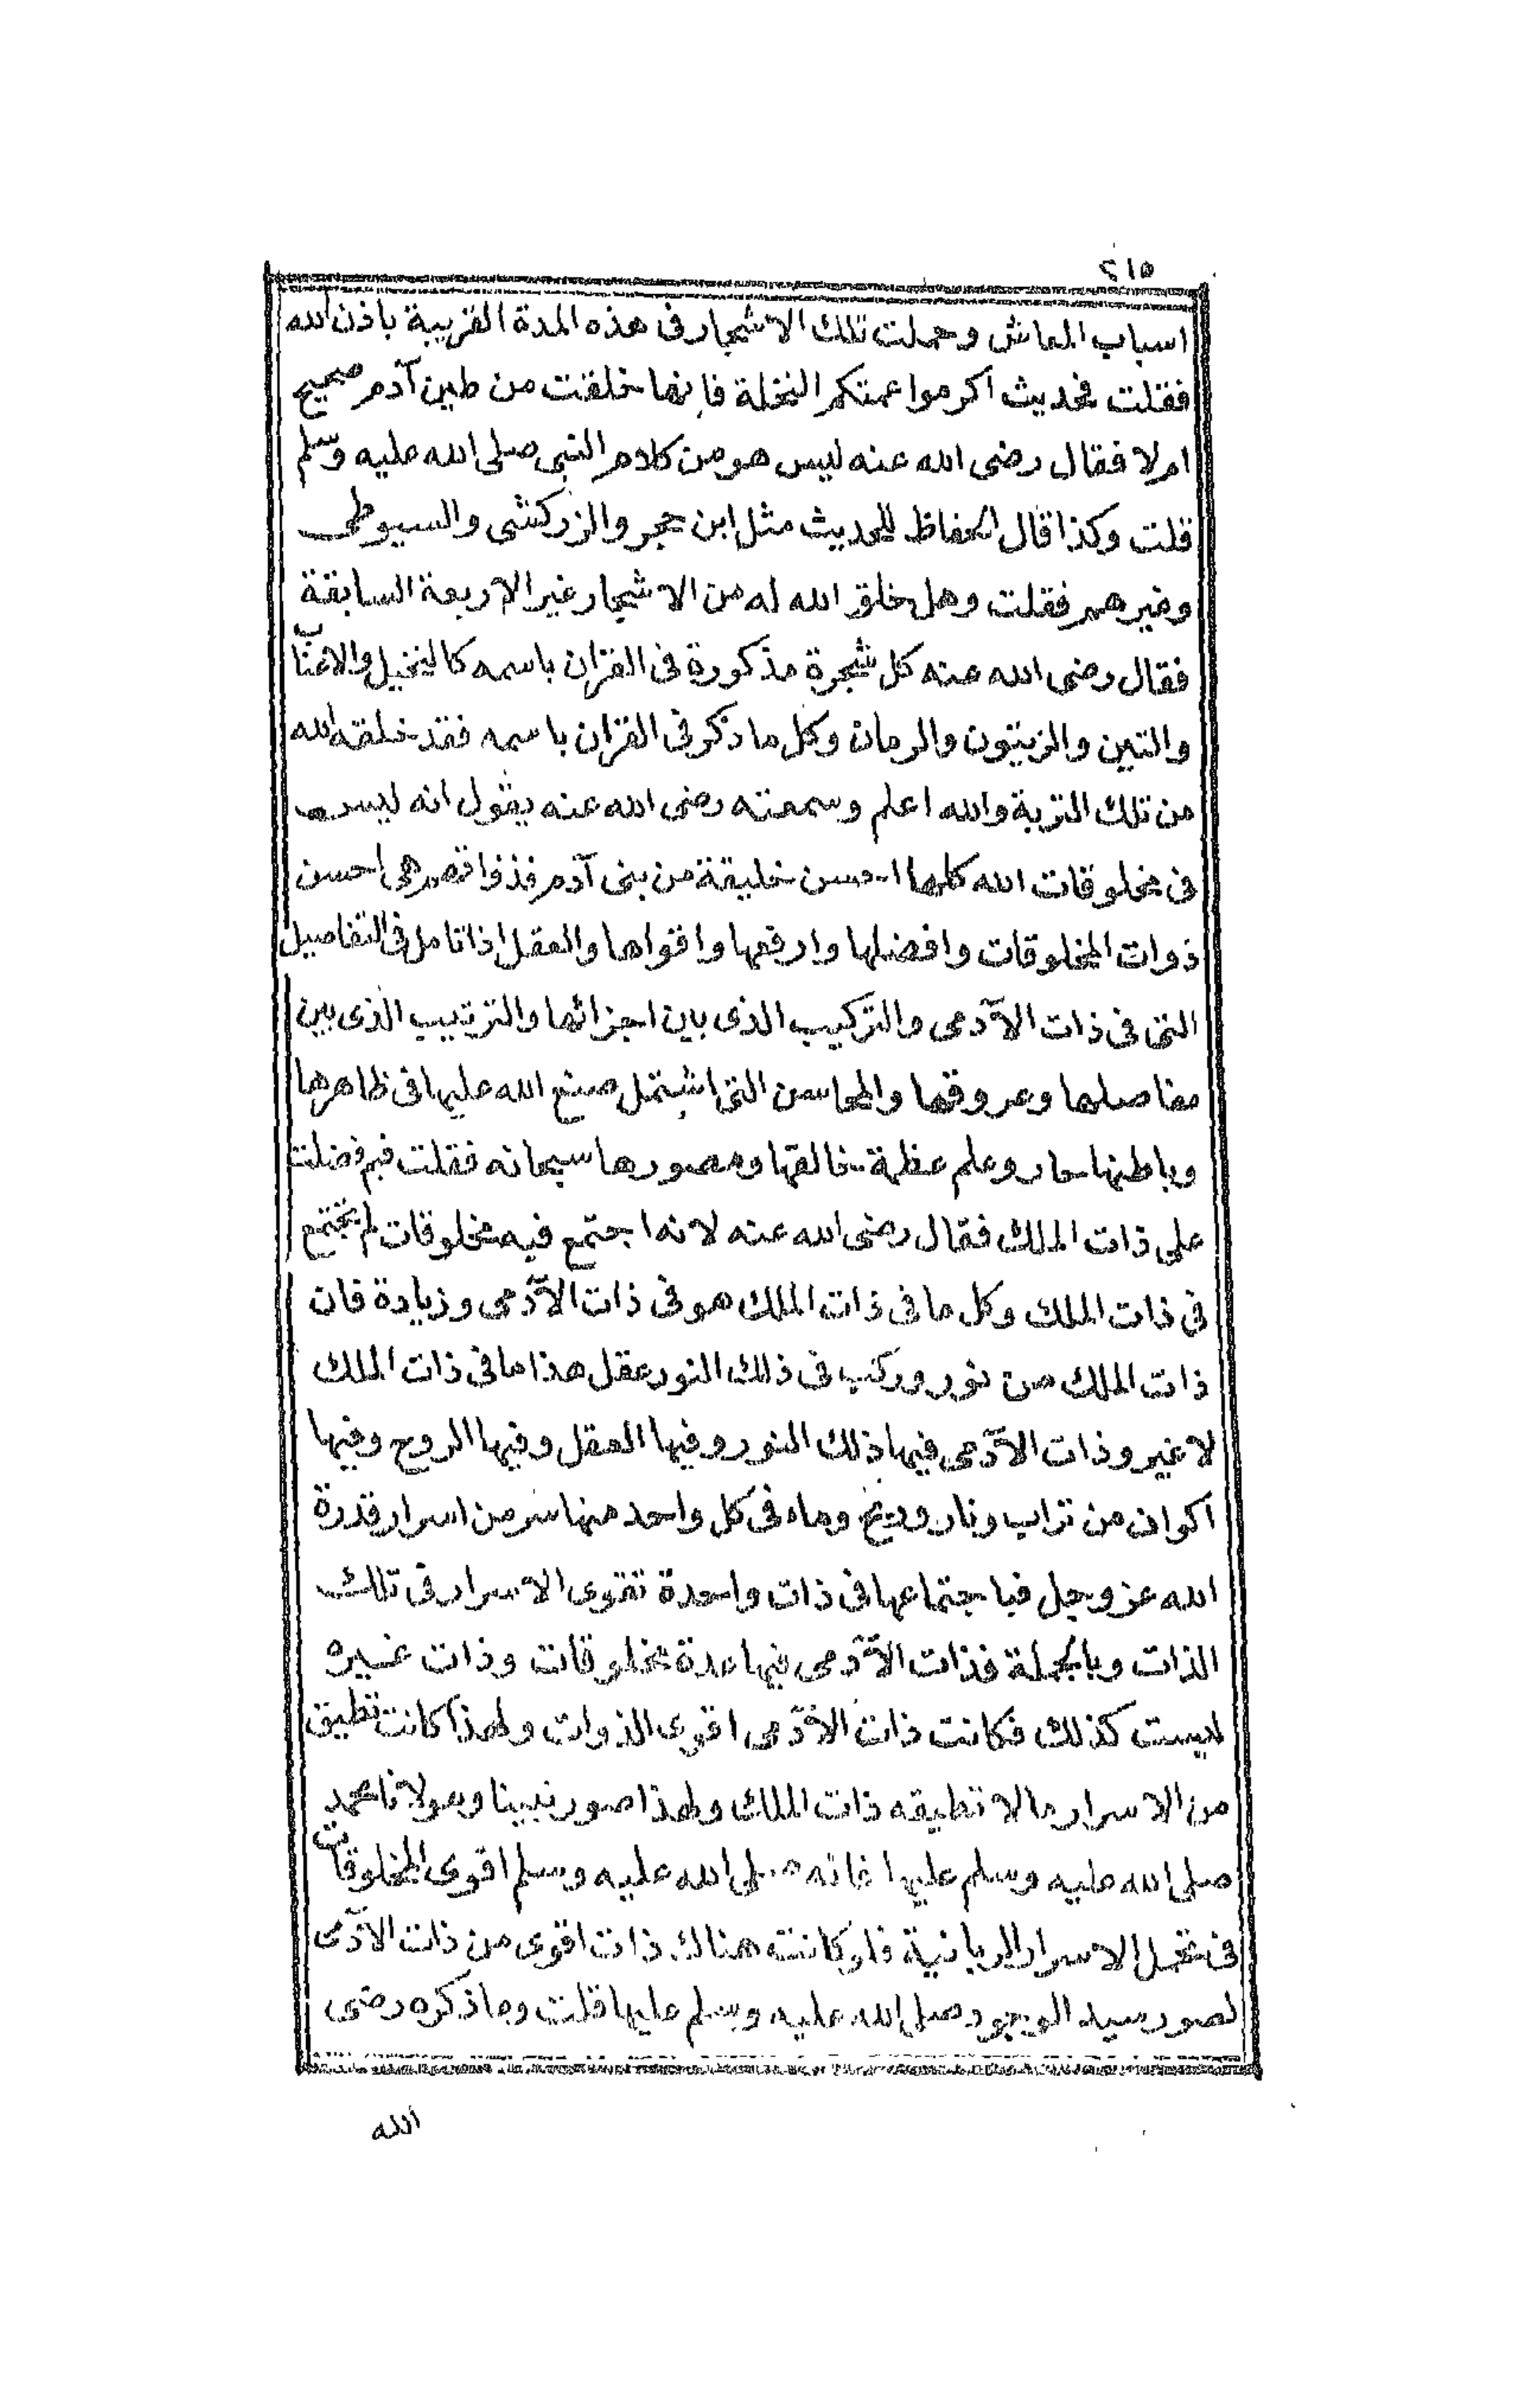 ٥١٢
اسباب المعاش وحملت تلك الاشجار فى هذه المدة القريبة باذن الله
فقلت فحديث اكرموا عمتكم النخلة فانها خلقت من طين آدم صحيح
ام لا فقال رضى الله عنه ليس هو من كلام النبى صلى الله عليه وسلم
قلت وكذا قال الحفاظ للحديث مثل ابن حجر والزركشى والسيوطى
وغيرهم فقلت وهل خلق الله له من الاشجار غير الاربعة السابقة
فقال رضى الله عنه كل شجرة مذكورة فى القرآن باسمه كالنخيل والاعناب
والتين والزيتون والرمان وكل ما ذكر فى القرآن باسمه فقد خلقه الله
من تلك التربة والله اعلم وسمعته رضى الله عنه يقول انه ليس
فى مخلوقات الله كلها احسن خليقة من بنى آدم فذواتهم هى احسن
ذوات المخلوقات وافضلها وارفعها واقواها والعقل اذا تامل فى التفاصيل
التى فى ذات الآدمى والتركيب الذى باين اجزائها والترتيب الذى بين
مفاصلها وعروقها والمحاسن التى اشتمل صنع الله عليها فى ظاهرها
وباطنها حار وعلم عظمة خالقها ومصورها سبحانه فقلت فبم فضلت
على ذات الملك فقال رضى الله عنه لانه اجتمع فيه مخلوقات لم تجتمع
فى ذات الملك وكل ما فى ذات الملك هو فى ذات الآدمى وزيادة فان
ذات الملك من نور وركب فى ذلك النور عقل هذا ما فى ذات الملك
لا غير وذات الآدمى فيها ذلك النور وفيها العقل وفيها الروح وفيها
اكوان من تراب ونار وريح وماء فى كل واحد منها سر من اسرار قدرة
الله عز وجل فباجتماعها فى ذات واحدة تقوى الاسرار فى تلك
الذات وبالجملة فذات الآدمى فيها عدة مخلوقات وذات غيره
ليست كذلك فكانت ذات الآدمى اقوى الذوات ولهذا كانت تطيق
من الاسرار ما لا تطيقه ذات الملك ولهذا صور نبينا ومولانا محمد
صلى الله عليه وسلم عليها فانه صلى الله عليه وسلم اقوى المخلوقات
فى تحمل الاسرار الربانية فلو كانت هناك ذات اقوى من ذات الآدمى
لصور سيد الوجود صلى الله عليه وسلم عليها قلت وما ذكره رضى
الله